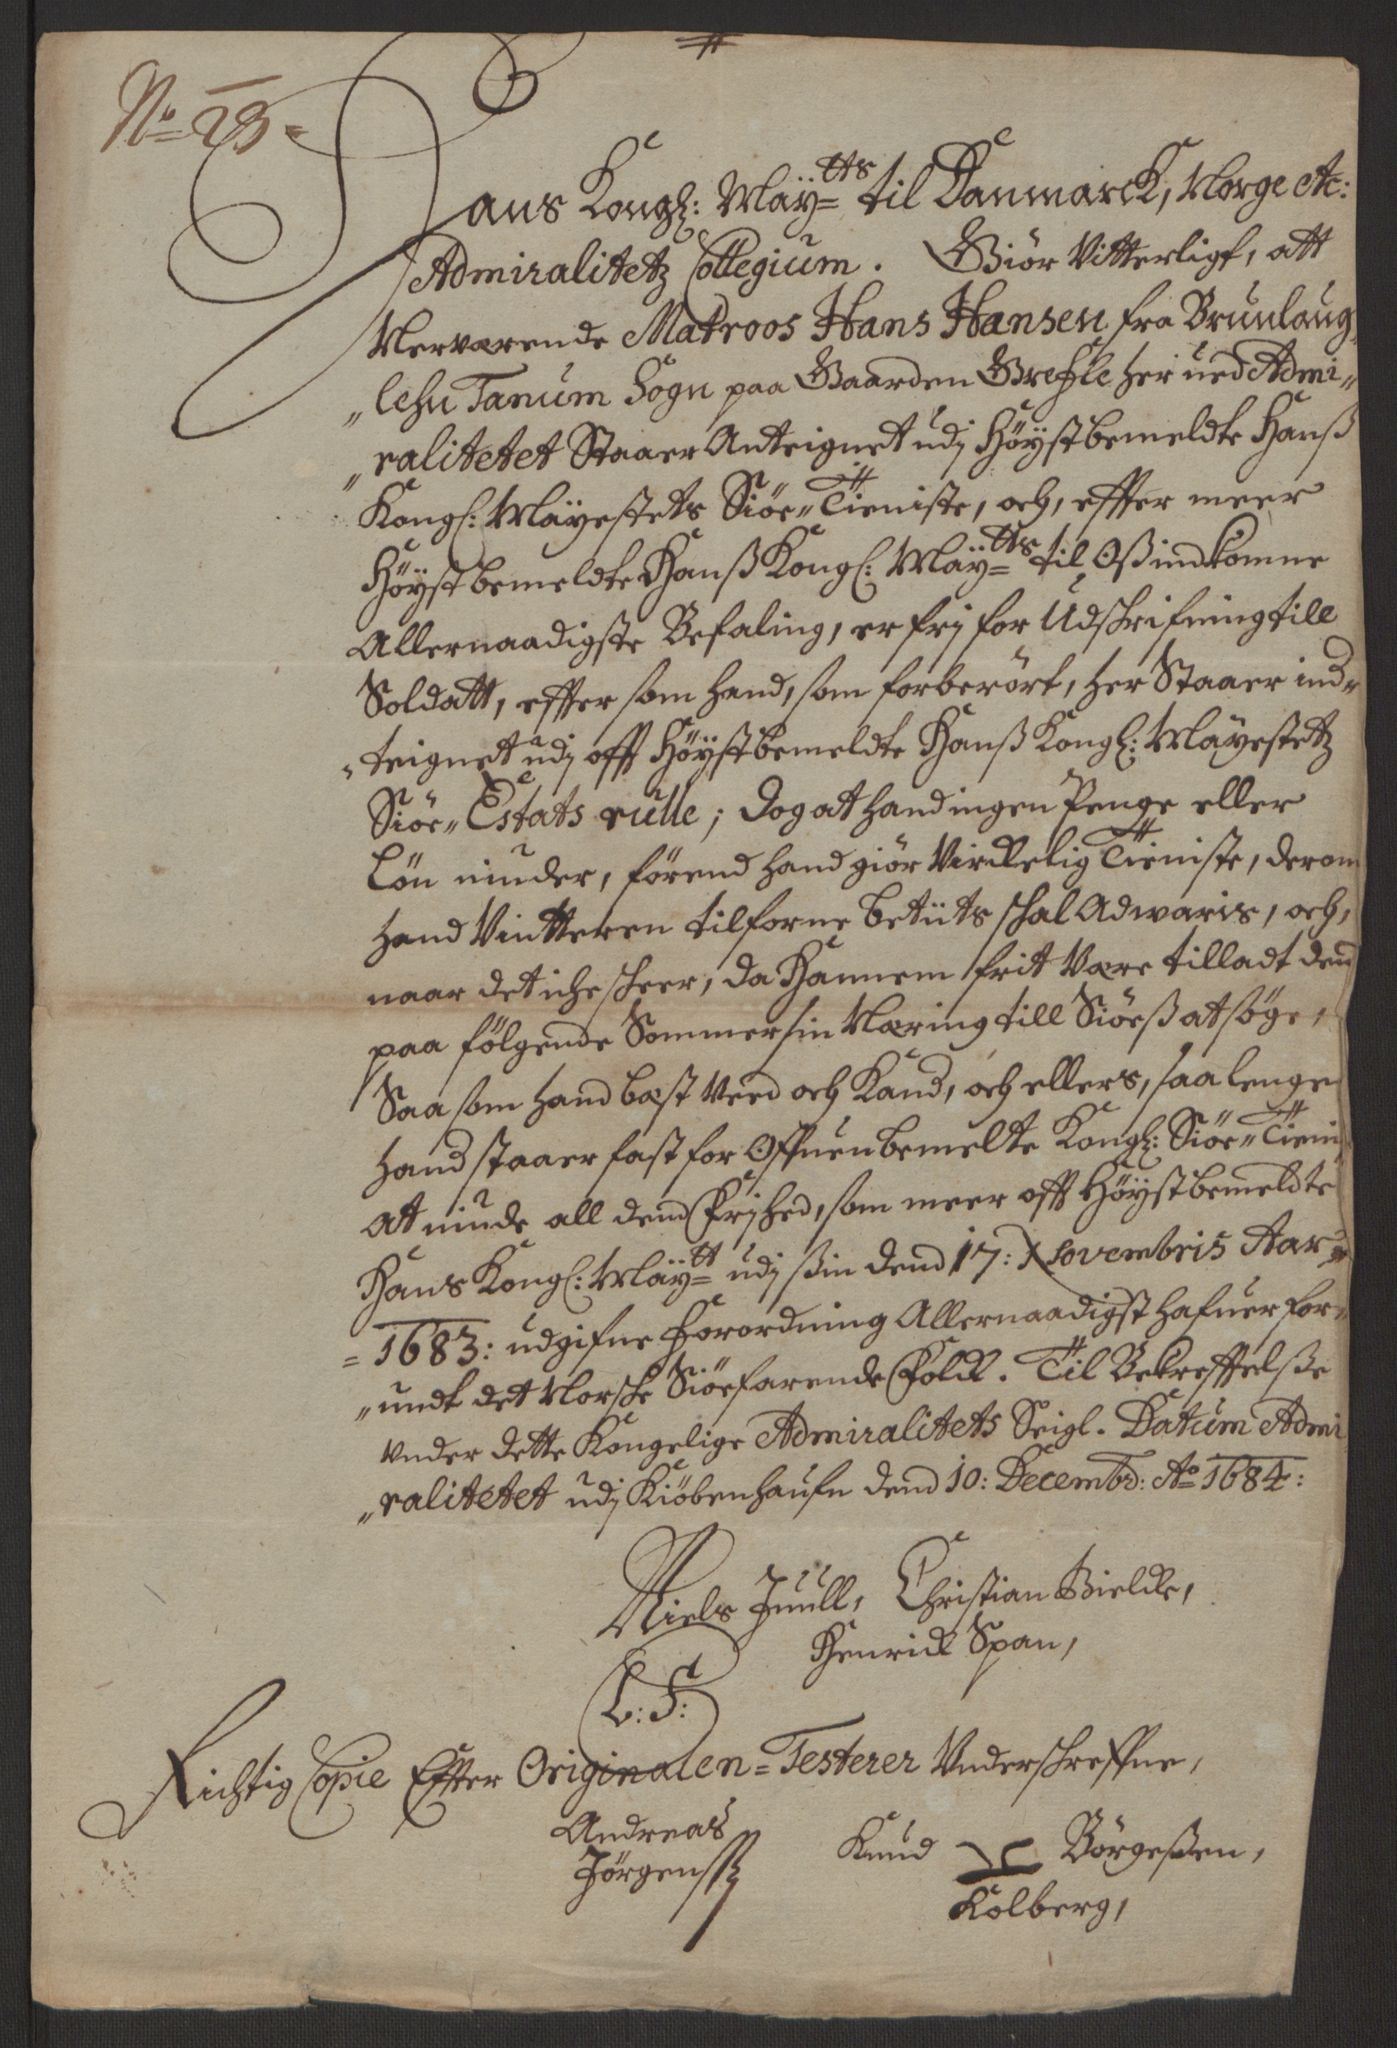 No 23
Hans Kongl: Maÿtts til Danmarck, Norge etc:
Admiralitetz Collegium. Giör Vitterligt, att
Nerværende Matroos Hans Hansen fra Brunlaug
lehn Tanum Sogn paa Gaarden Grefle her ued Admi„
„ralitetet Staaer Anteignet udj Höÿstbemeldte Hanß
Kongl: Maÿestets Siöe„Tieniste, och, effter meer
Höÿstbemeldte Hanß Kongl: Maÿtts til Oß indkomne
Allernaadigste Befaling, er frj for Udschrifning till
Soldatt, effter som hand, som forberört, her Staaer ind„
„teignet udj offt Höÿstbemeldte Hanß Kongl: Maÿestetz
Siöe„Estats rulle; dog at hand ingen Penge eller
Lön niuder, förend hand giör Virckelig Tieniste, derom
hand Vintteren tilforne betiits schal Adwaris, och,
naar det iche scheer, da Hannem frit Være tilladt dend
paa fölgende Sommer sin Næring till Siöeß at söge,
Saa som hand best Veed och Kand, och ellers, saa lenge
hand staaer fast for Offuenbemelte Kongl: Siöe„Tieni
At niude all dend Frjhed, som meer offt Höÿstbemeldte
Hans Kongl: Maÿtt udj ßin dend 17: Novembris Aar„
„1683: udgifne Forordning Allernaadigst hafuer for„
„undt det Norsche Siöefarende Folck. Til Bekrefftelße
under dette Kongelige Admiralitets Seigl. Datum Admi
„ralitetet udj Kiöbenhaufn dend 10: Decembr: Ao 1684:
Niels Juull, Christian Bielcke,
Henrick Span,
L: S:
Richtig Copie Effter Originalen Testerer Underschrefne,
Andreas Knud Börgeßen,
Jörgenß Kolberg,